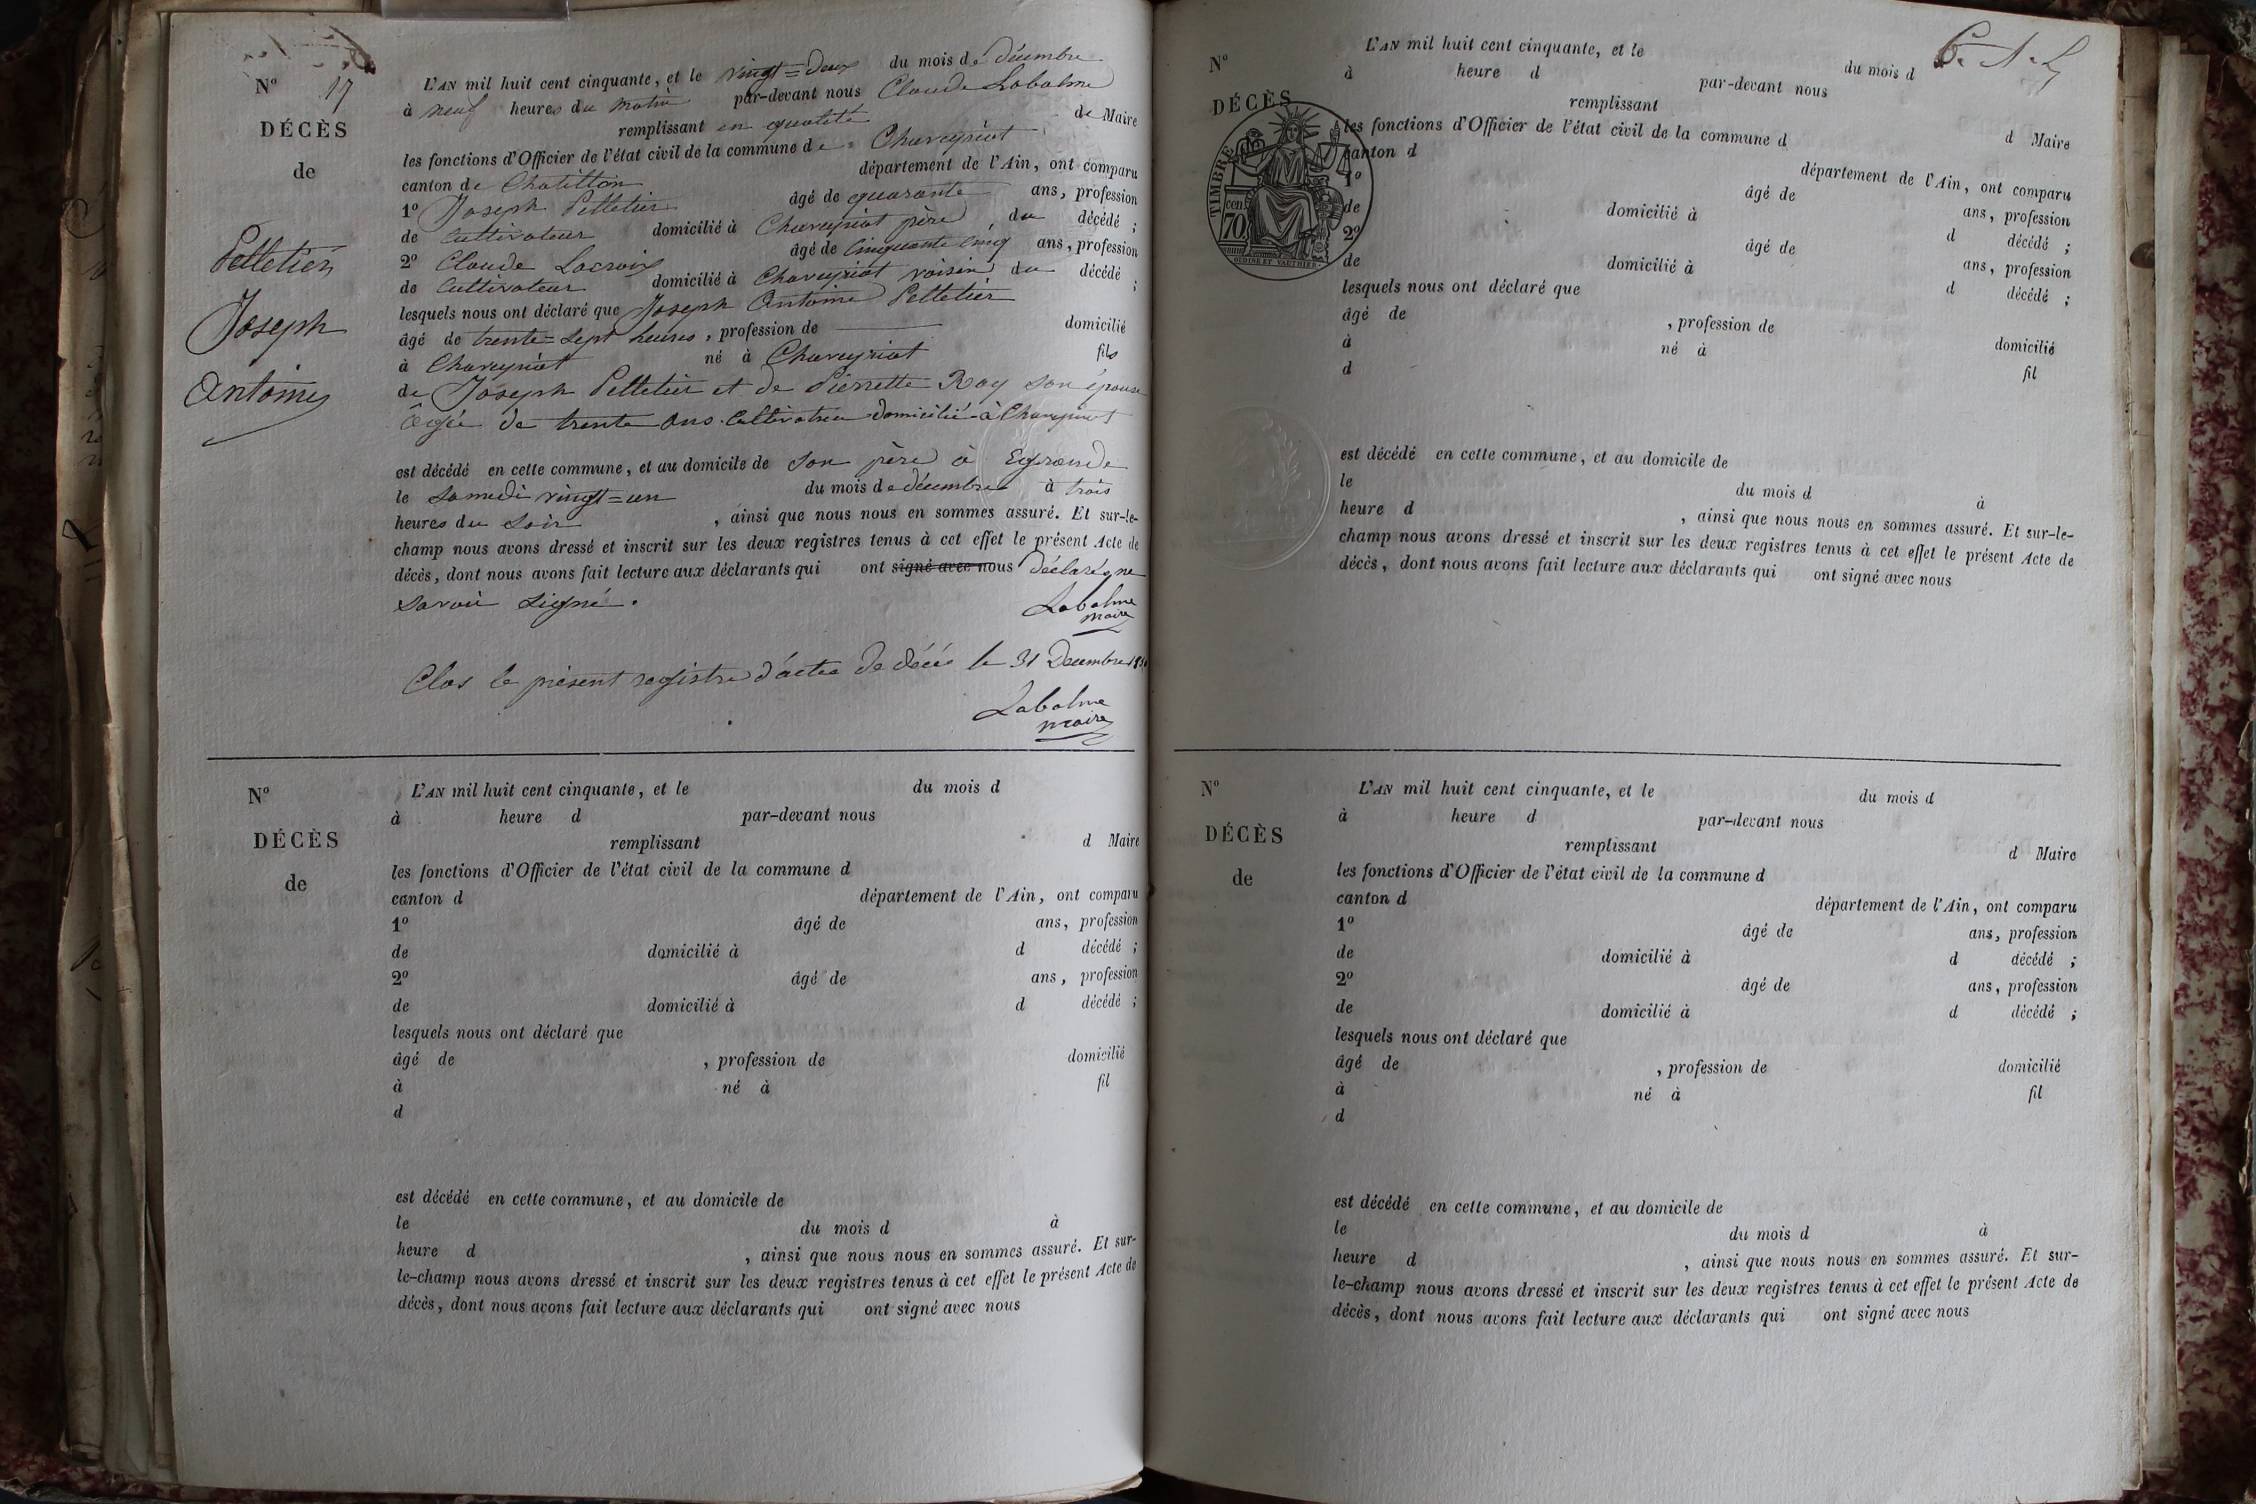 N° 17
DÉCÈS
de
Pelletier
Joseph
Antoine
L'AN mil huit cent cinquante, et le vingt=deux du mois de décembre
à neuf heures du matin par-devant nous Claude Labalme
remplissant en qualité de Maire
les fonctions d'Officier de l'état civil de la commune de Chaveyriat
canton de Chatillon département de l'Ain, ont comparu
1° Joseph Pelletier âgé de quarante ans, profession
de cultivateur domicilié à Chaveyriat père du décédé ;
2° Claude Lacroix âgé de cinquante cinq ans, profession
de cultivateur domicilié à Chaveyriat voisin du décédé ;
lesquels nous ont déclaré que Joseph Antoine Pelletier
âgé de trente=sept heures, profession de — domicilié
à Chaveyriat né à Chaveyriat fils
de Joseph Pelletier et de Pierrette Ray son épouse
âgée de trente ans cultivatrice domicilié à Chaveyriat
est décédé en cette commune, et au domicile de son père à
le samedi vingt=un du mois de décembre à trois
heures du soir, ainsi que nous nous en sommes assuré. Et sur-le-
champ nous avons dressé et inscrit sur les deux registres tenus à cet effet le présent Acte de
décès, dont nous avons fait lecture aux déclarants qui ont signé avec nous déclaré ne
savoir signé.
Labalme
maire
Clos le présent registre d'actes de décès le 31 Décembre 1850
Labalme
maire
N°
DÉCÈS
de
L'AN mil huit cent cinquante, et le du mois d
à heure d par-devant nous
remplissant d Maire
les fonctions d'Officier de l'état civil de la commune d
canton d département de l'Ain, ont comparu
1° âgé de ans, profession
de domicilié à d décédé ;
2° âgé de ans, profession
de domicilié à d décédé ;
lesquels nous ont déclaré que
âgé de , profession de domicilié
à né à fil
d
est décédé en cette commune, et au domicile de
le du mois d à
heure d , ainsi que nous nous en sommes assuré. Et sur-
le-champ nous avons dressé et inscrit sur les deux registres tenus à cet effet le présent Acte de
décès, dont nous avons fait lecture aux déclarants qui ont signé avec nous
N°
DÉCÈS
TIMBRE
70 cen
OUDINE ET VAUTHIER.
L'AN mil huit cent cinquante, et le du mois d
à heure d par-devant nous
remplissant d Maire
les fonctions d'Officier de l'état civil de la commune d
canton d département de l'Ain, ont comparu
1° âgé de ans, profession
de domicilié à d décédé ;
2° âgé de ans, profession
de domicilié à d décédé ;
lesquels nous ont déclaré que
âgé de , profession de domicilié
à né à fil
d
est décédé en cette commune, et au domicile de
le du mois d à
heure d , ainsi que nous nous en sommes assuré. Et sur-le-
champ nous avons dressé et inscrit sur les deux registres tenus à cet effet le présent Acte de
décès, dont nous avons fait lecture aux déclarants qui ont signé avec nous
N°
DÉCÈS
de
L'AN mil huit cent cinquante, et le du mois d
à heure d par-devant nous
remplissant d Maire
les fonctions d'Officier de l'état civil de la commune d
canton d département de l'Ain, ont comparu
1° âgé de ans, profession
de domicilié à d décédé ;
2° âgé de ans, profession
de domicilié à d décédé ;
lesquels nous ont déclaré que
âgé de , profession de domicilié
à né à fil
d
est décédé en cette commune, et au domicile de
le du mois d à
heure d , ainsi que nous nous en sommes assuré. Et sur-
le-champ nous avons dressé et inscrit sur les deux registres tenus à cet effet le présent Acte de
décès, dont nous avons fait lecture aux déclarants qui ont signé avec nous